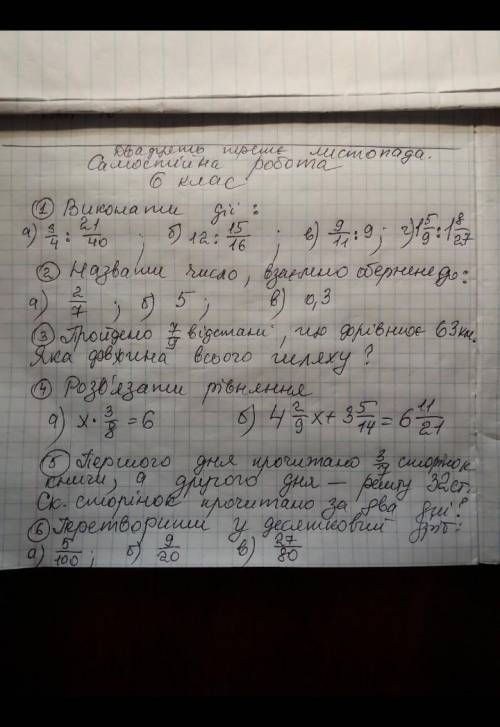 двадцять третє листопада.
Самостійна робота
6 клас
① Виконати дії :
а) 3/4 : 21/40 ; б) 12 : 15/16 ; в) 9/11 : 9 ; г) 1 5/9 : 1 8/27
② Назвати число, взаємно обернене до:
а) 2/7 ; б) 5 ; в) 0,3
③ Пройдено 7/9 відстані, що дорівнює 63 км.
Яка довжина всього шляху ?
④ Розв'язати рівняння
а) x · 3/8 = 6 б) 4 2/9 x + 3 5/14 = 6 11/21
⑤ Першого дня прочитано 3/7 сторінок
книги, а другого дня – решту 32 ст.
Ск. сторінок прочитано за два дні ?
⑥ Перетворити у десятковий дріб:
а) 5/100 ; б) 9/20 в) 27/80